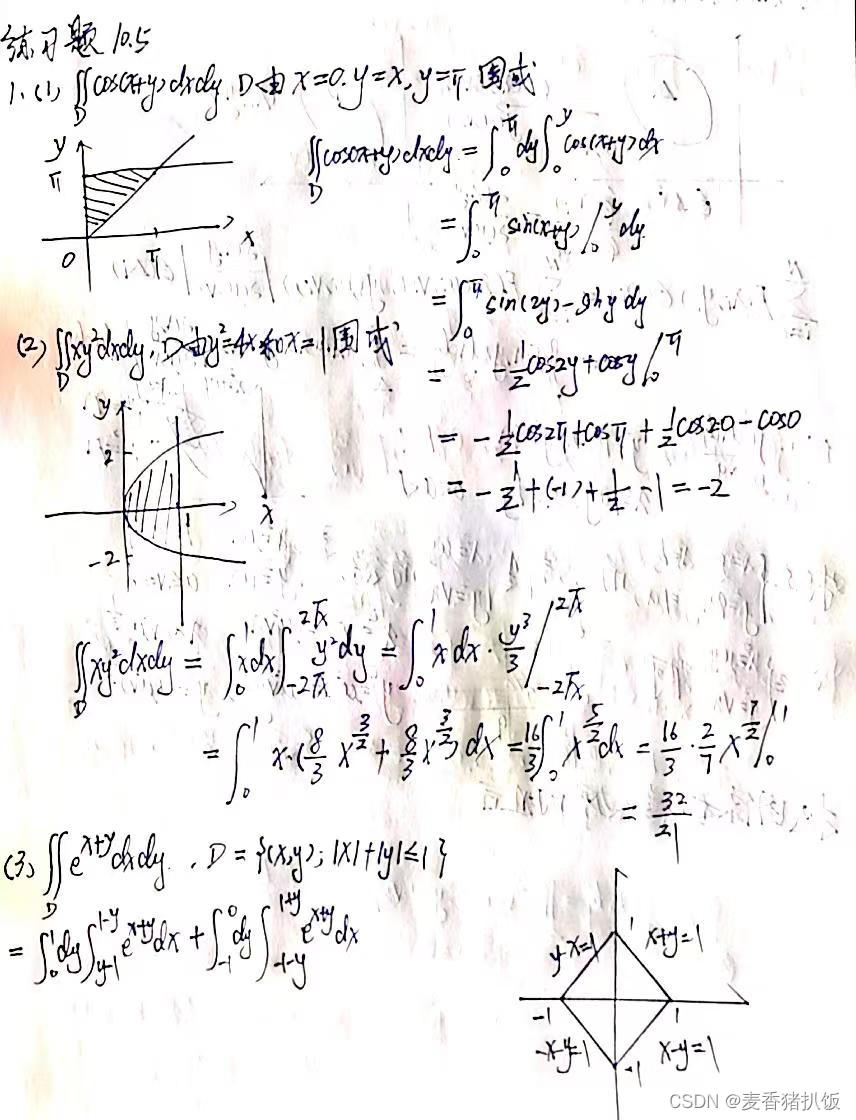 练习题 10.5
1. (1) ∬_D cos(x+y) dxdy. D由 x=0. y=x, y=π. 围成
∬_D cos(x+y) dxdy = ∫_0^π dy ∫_0^y cos(x+y) dx
= ∫_0^π sin(x+y) /_0^y dy
= ∫_0^π sin(2y) - sin y dy
= -1/2 cos2y + cosy /_0^π
= -1/2 cos2π + cosπ + 1/2 cos2·0 - cos0
= -1/2 + (-1) + 1/2 - 1 = -2
y
π
0
π
x
(2) ∬_D xy² dxdy. D由 y²=4x 和 x=1 围成
y
2
1
x
-2
∬_D xy² dxdy = ∫_0^1 x dx ∫_{-2√x}^{2√x} y² dy = ∫_0^1 x dx · y³/3 /_{-2√x}^{2√x}
= ∫_0^1 x·(8/3 x^{3/2} + 8/3 x^{3/2}) dx = 16/3 ∫_0^1 x^{5/2} dx = 16/3 · 2/7 x^{7/2} /_0^1
= 32/21
(3) ∬_D e^{x+y} dxdy. , D = {(x,y); |x|+|y|≤1}
= ∫_0^1 dy ∫_{y-1}^{1-y} e^{x+y} dx + ∫_{-1}^0 dy ∫_{-1-y}^{1+y} e^{x+y} dx
1
y-x=1
x+y=1
-1
1
-x-y=1
x-y=1
-1
CSDN @麦香猪扒饭